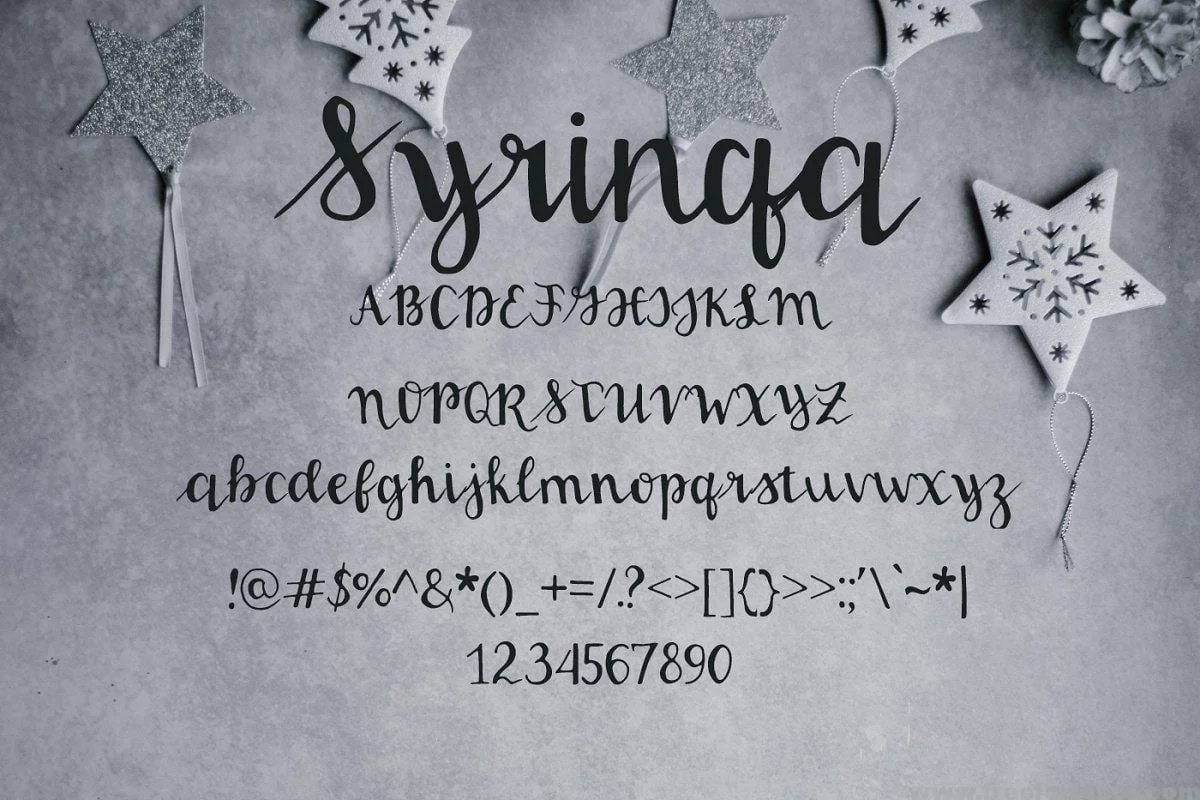 Syrinqa
ABCDEFGHIJKLM
NOPQRSTUVWXYZ
abcdefghijklmnopqrstuvwxyz
!@#$%^&*()_+=/.?<>[]{}>>:;'\`~*|
1234567890